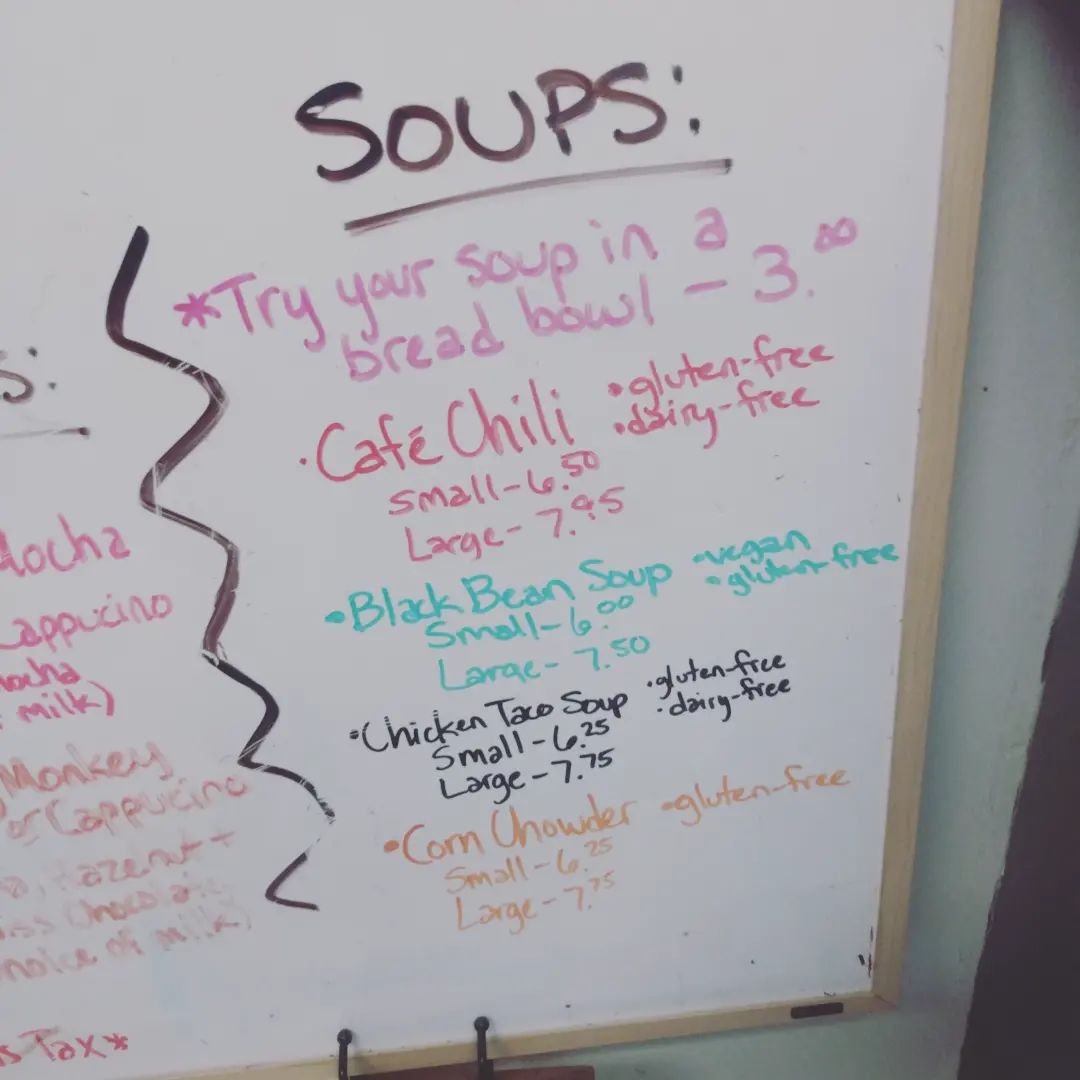 SOUPS:
*Try your soup in a
bread bowl - 3.00
•Café Chili •gluten-free
•dairy-free
Small-6.50
Large-7.95
•Black Bean Soup •vegan
•gluten-free
Small-6.00
Large-7.50
•Chicken Taco Soup •gluten-free
•dairy-free
Small-6.25
Large-7.75
•Corn Chowder •gluten-free
Small-6.25
Large-7.75
s:
Mocha
Cappucino
milk)
Monkey
or Cappucino
Hazelnut +
Chocolate
of milk)
Tax*